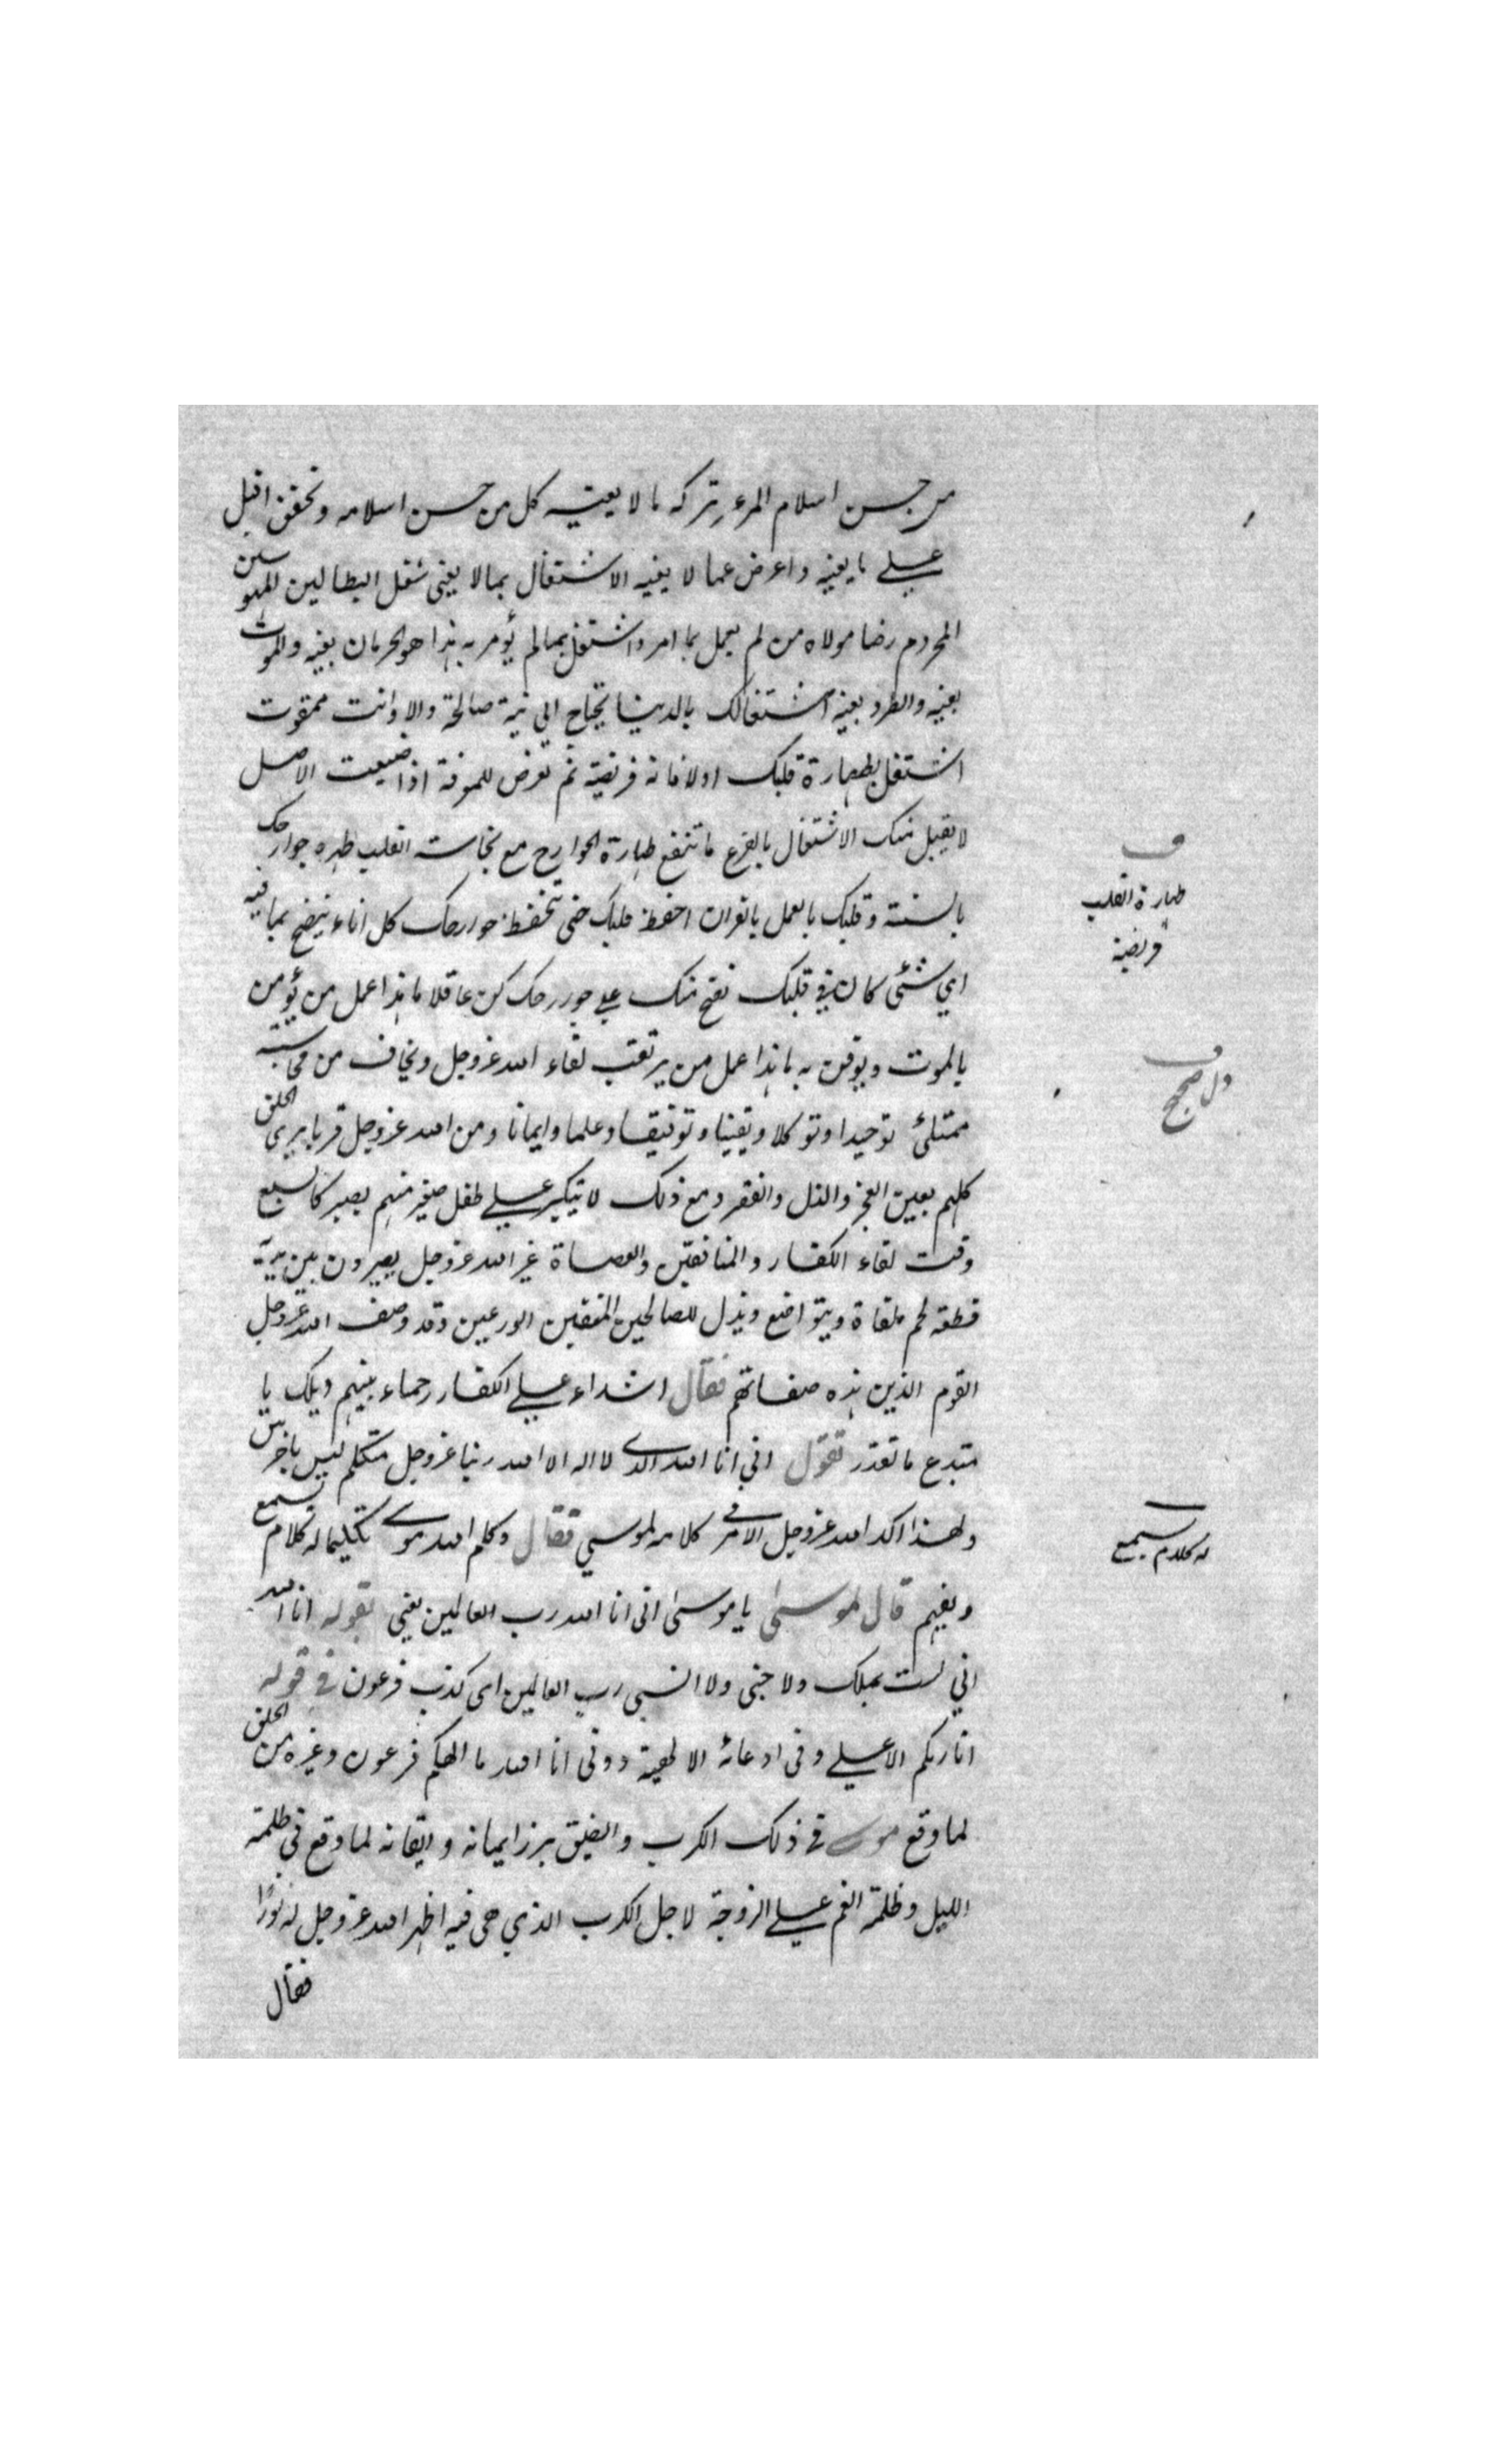 من حسن اسلام المرء تركه ما لا يعنيه كل من حسن اسلامه وتحقق اقبل
علے ما يعنيه واعرض عما لا يعنيه الاشتغال بما لا يعنى شغل البطالين المهوسين
المحروم رضا مولاه من لم يعمل بما امر واشتغل بمالم يؤمر به هذا هو الحرمان بعينه والموت
بعينه والطرد بعينه اشتغالك بالدنيا يحتاج الى نية صالحة والا وانت ممقوت
اشتغل بطهارة قلبك اولا فانه فريضة ثم تعرض للمعرفة اذا ضيعت الاصل
لا يقبل منك الاشتغال بالفرع ما تنفع طهارة الجوارح مع نجاسة القلب طهره جوارحك
بالسنة وقلبك بالعمل بالقران احفظ قلبك حتى تحفظ جوارحك كل اناء ينضح بما فيه
اي شئى كان فى قلبك نضح منك على جوارحك كن عاقلا ما هذا عمل من يؤمن
بالموت ويوقن به ما هذا عمل من يرتقب لقاء الله عز وجل ويخاف من محاسبته
ممتلئ توحيدا وتوكلا ويقينا وتوفيقا وعلما وايمانا ومن الله عز وجل قربا يرى الخلق
كلهم بعين العجز والذل والفقر ومع ذلك لا يتكبر علے طفل صغير منهم يصير كالسبع
وقت لقاء الكفار والمنافقين والعصاة غير الله عز وجل يصيرون بين يديه
قطعة لحم ملقاة ويتواضع ويذل للصالحين المتقين الورعين وقد وصف الله عز وجل
القوم الذين هذه صفاتهم فقال اشداء علے الكفار رحماء بينهم ويلك يا
مبتدع ما تقدر تقول انى انا الله الذى لا اله الا الله ربنا عز وجل متكلم ليس باخرس
ولهذا اكد الله عز وجل الامر فى كلامه لموسى فقال وكلم الله موسى تكليما له كلام يسمع
ويفهم قال لموسىٰ يا موسىٰ انى انا الله رب العالمين يعنى بقوله انا الله
اني لست بملك ولا جنى ولا انسى رب العالمين اى كذب فرعون فى قوله
انا ربكم الاعلے وفى ادعائه الالهية دونى انا الله ما الهكم فرعون وغيره من الخلق
لما وقع موسى فى ذلك الكرب والضيق برز ايمانه وايقانه لما وقع فى ظلمة
الليل وظلمة الغم علے الزوجة لاجل الكرب الذي هى فيه اظهر الله عز وجل له نورًا
فقال
ف
طهارة القلب
فريضة
ف
له كلام يسمع